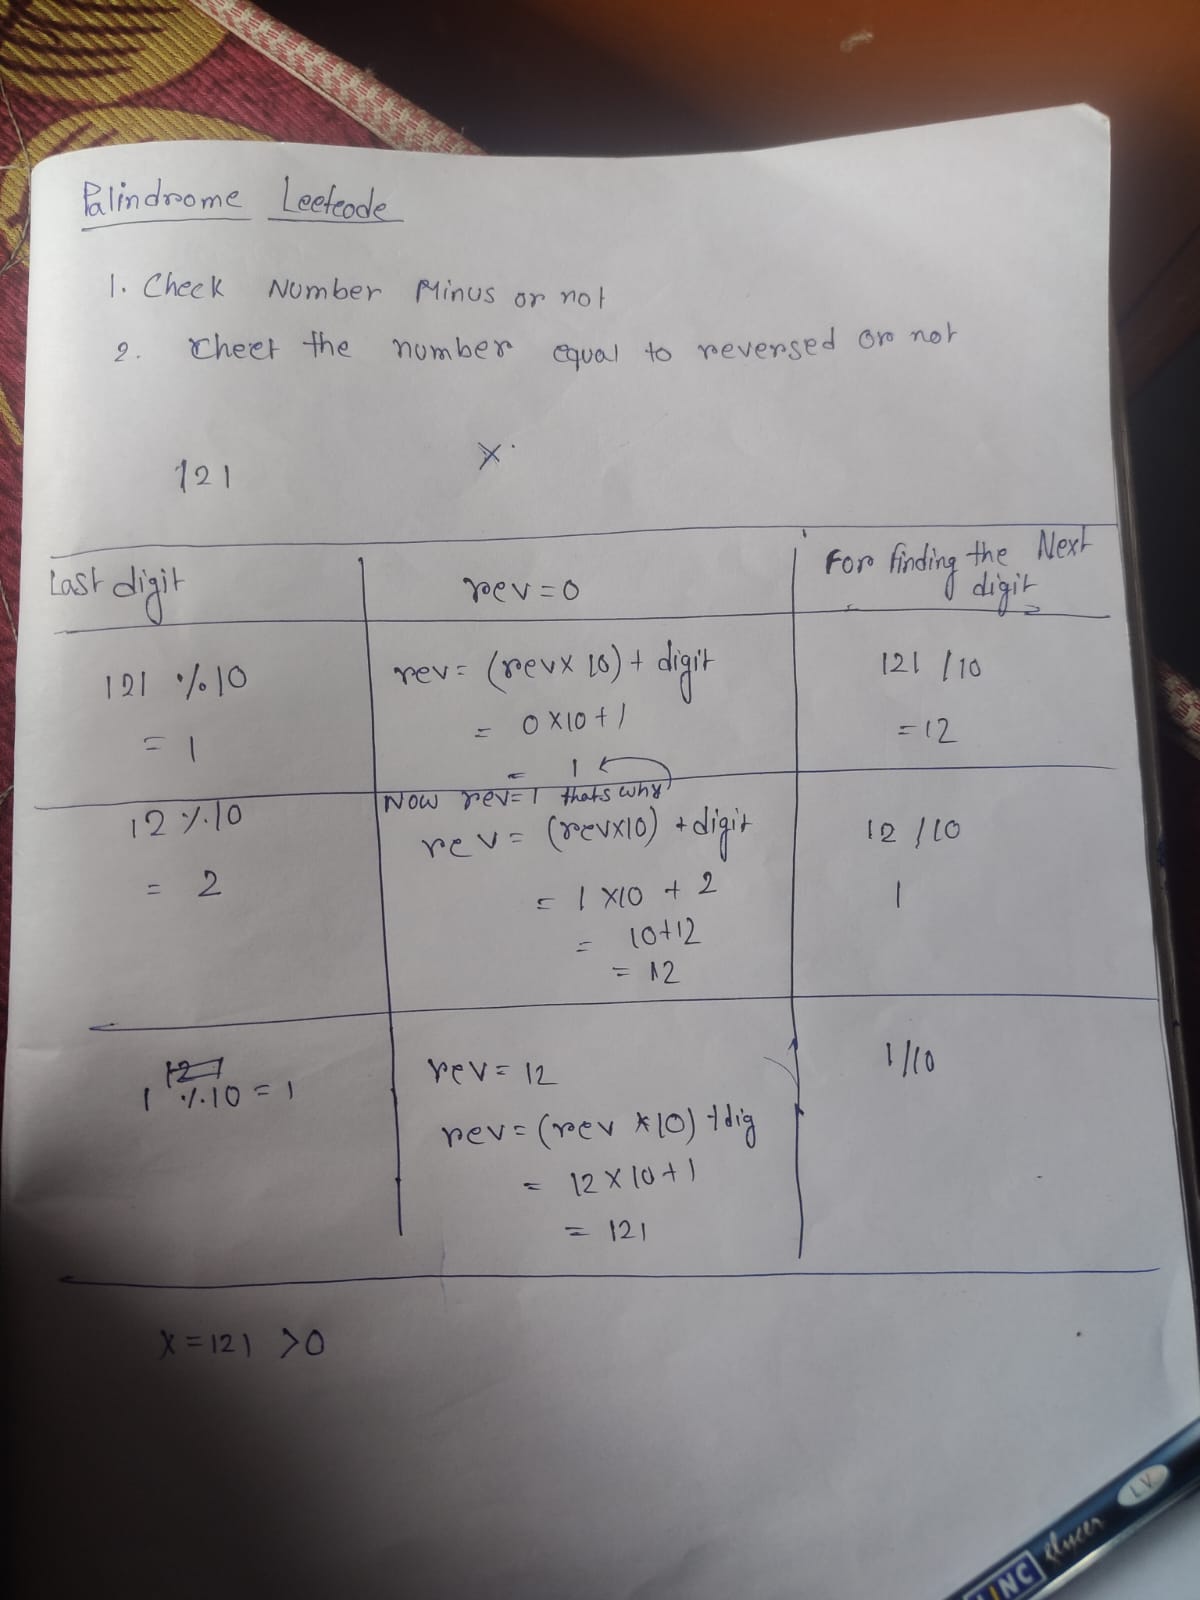 Palindrome Leetcode
1. Check Number Minus or not
2. Cheet the number equal to reversed or not
121
x.
Last digit
rev = 0
For finding the Next digit
121 % 10
= 1
rev = (rev x 10) + digit
= 0 X 10 + 1
= 1
121 / 10
= 12
12 % 10
= 2
Now rev = 1 thats why
rev = (revx10) + digit
= 1 X10 + 2
= 10+12
= 12
12 / 10
1
1 % 10 = 1
rev = 12
rev = (rev * 10) + dig
= 12 X 10 + 1
= 121
1/10
X = 121 > 0
LINC glycer
LV